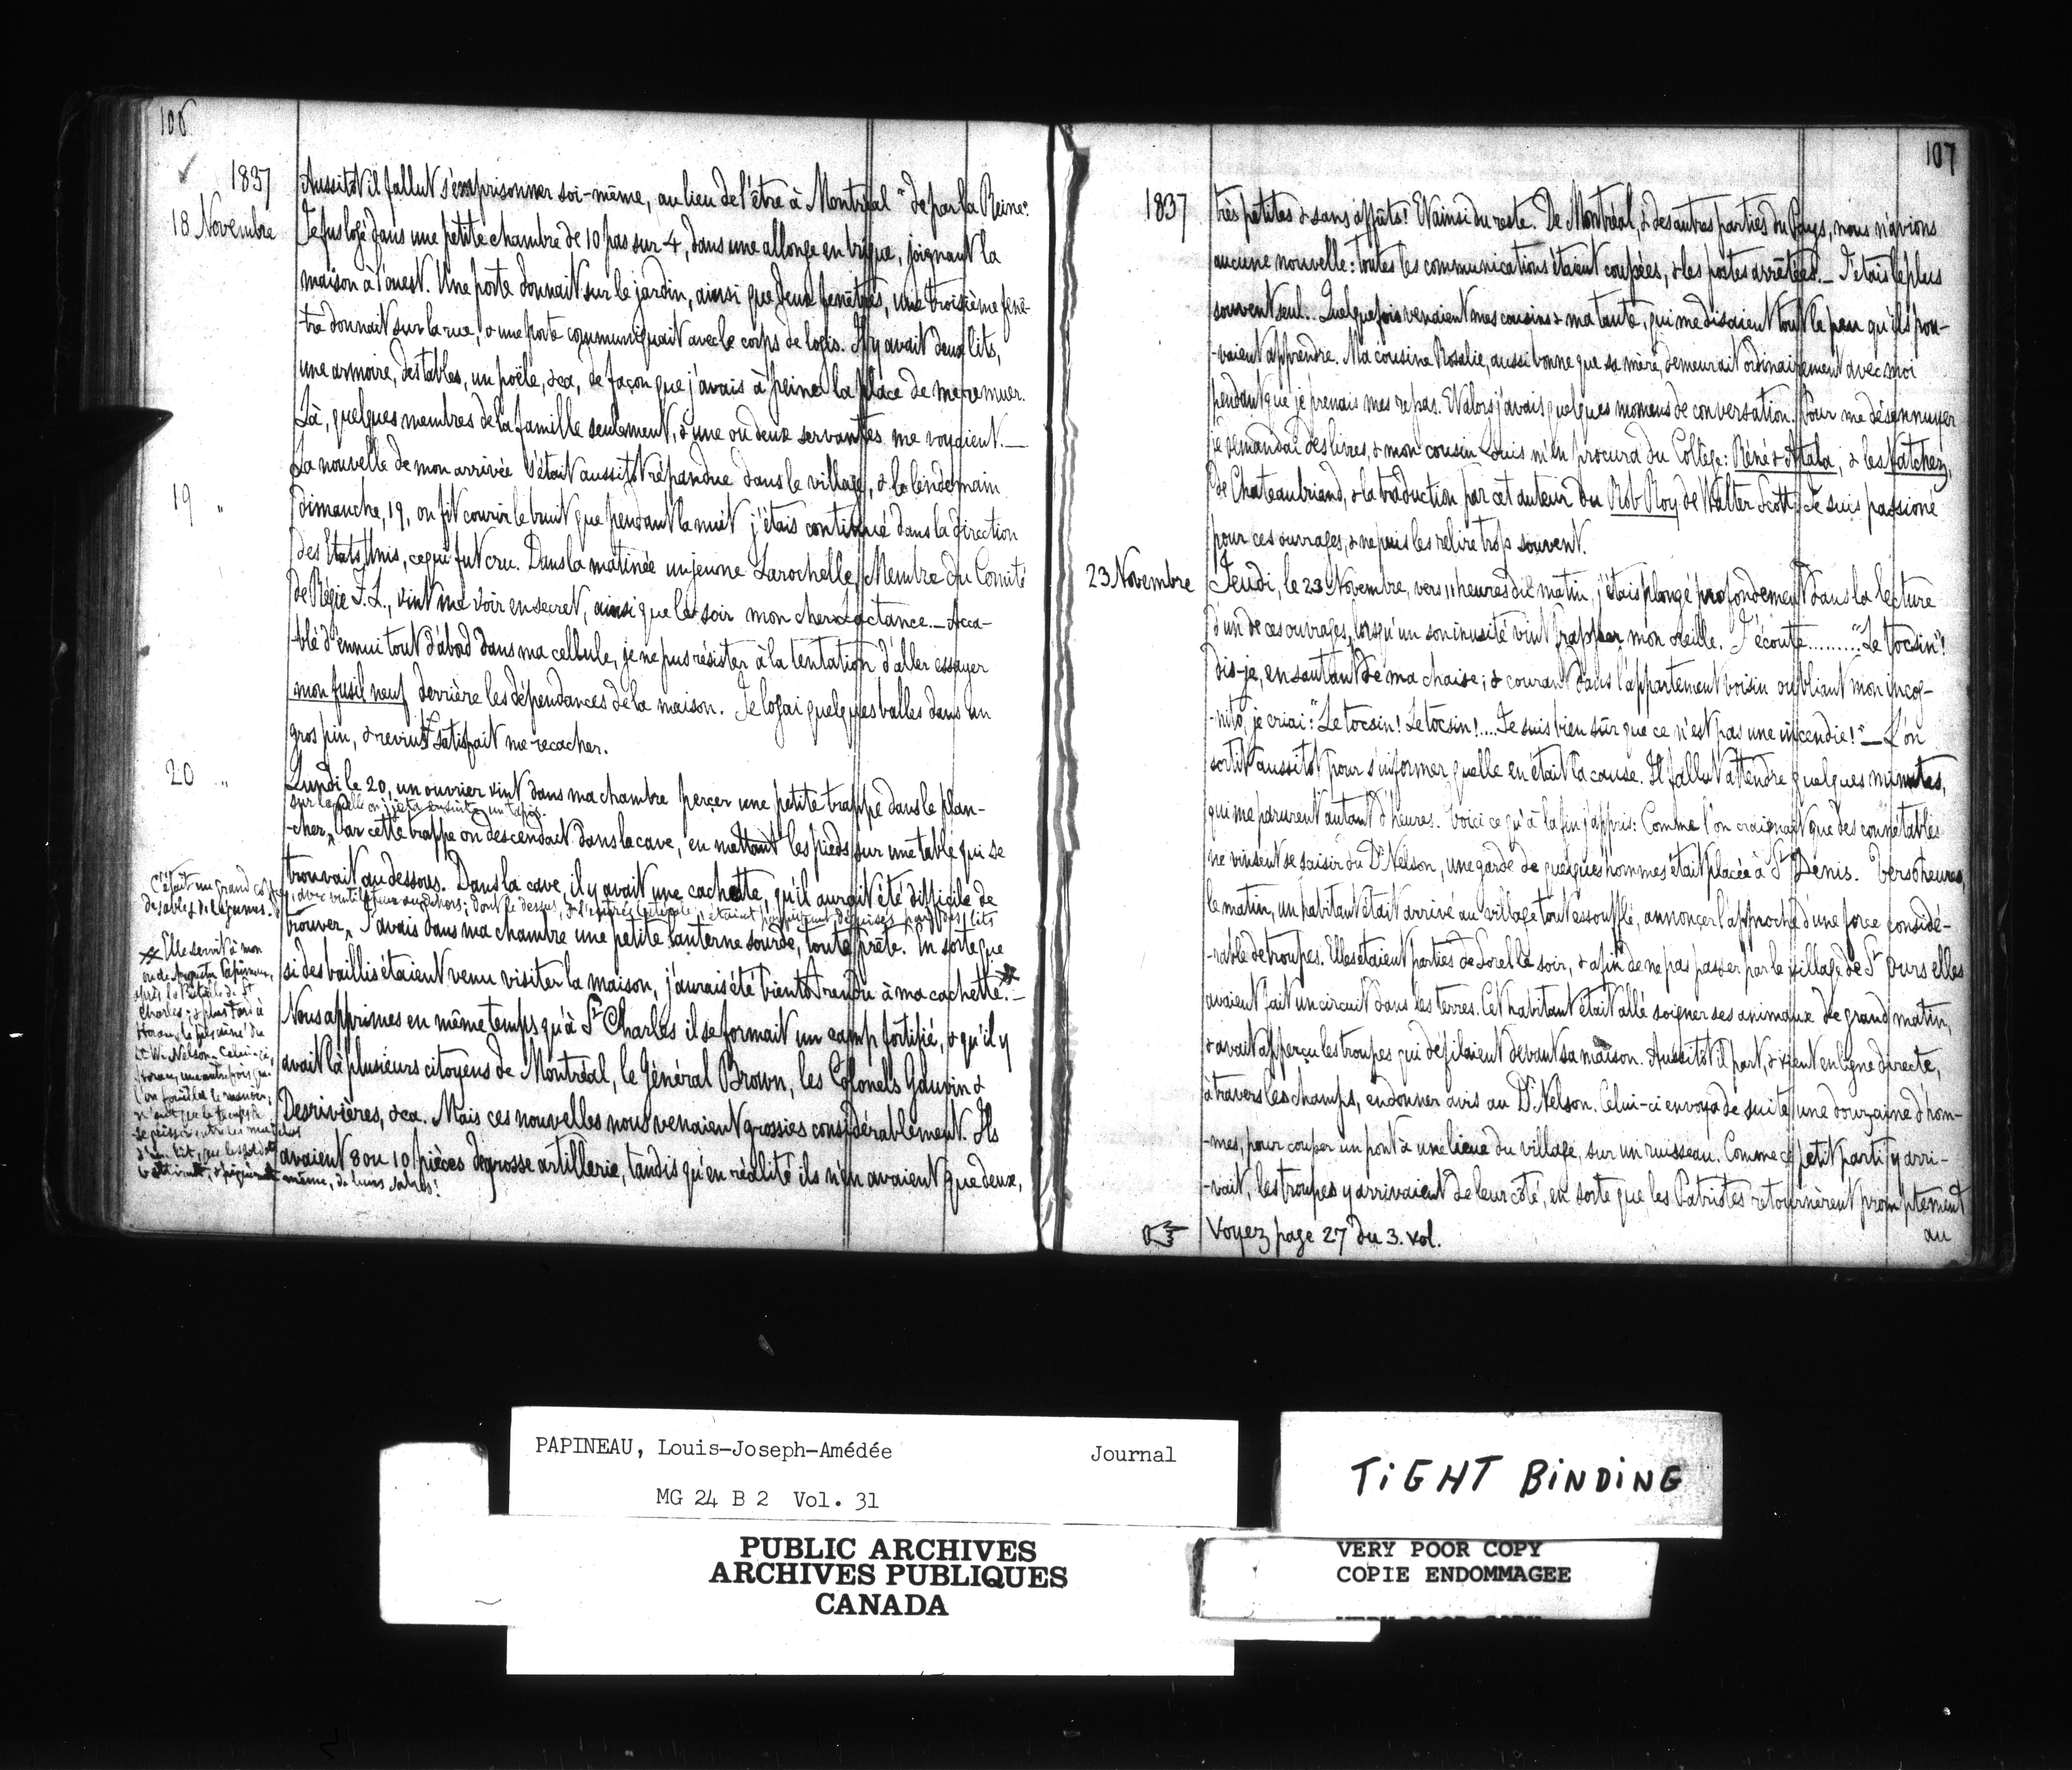 106
1837
18 Novembre
Aussitôt il fallut s'emprisonner soi-même, au lieu de l'être à Montréal "de par la Reine".
Je fus logé dans une petite chambre de 10 pas sur 4, dans une allonge en brique, joignant la
maison à l'ouest. Une porte donnait sur le jardin, ainsi que deux fenêtres, une troisième fenê-
tre donnait sur la rue, & une porte communiquait avec le corps de logis. Il y avait deux lits,
une armoire, des tables, un poële, &ca, de façon que j'avais à peine la place de me remuer.
Là, quelques membres de la famille seulement, & une ou deux servantes me voyaient. —
La nouvelle de mon arrivée s'était aussitôt répandue dans le village, & le lendemain
19 "
dimanche, 19, on fit courir le bruit que pendant la nuit j'étais continué dans la direction
des Etats Unis, ce qui fut cru. Dans la matinée un jeune Larochelle, Membre du Comité
de Régie F. L., vint me voir en secret, ainsi que le soir mon cher Lactance. — Acca-
-blé d'ennui tout d'abord dans ma cellule, je ne pus résister à la tentation d'aller essayer
mon fusil neuf derrière les dépendances de la maison. Je logai quelques balles dans un
gros pin, & revins satisfait me recacher.
20 "
Lundi le 20, un ouvrier vint dans ma chambre perçer une petite trappe dans le plan-
sur laquelle on jeta ensuite un tapis.
-cher, Par cette trappe on descendait dans la cave, en mettant les pieds sur une table qui se
trouvait au dessous. Dans la cave, il y avait une cachette, qu'il aurait été difficile de
C'était un grand coffre, avec ventilateur au dehors; dont le dessus, & l'entrée latérale, étaient déguisés par des lits
de sable & de légumes.
trouver, J'avais dans ma chambre une petite lanterne sourde, toute prête. En sorte que
si des baillis étaient venu visiter la maison, j'aurais été bientôt rendu à ma cachette.* —
Nous apprimes en même temps qu'à St Charles il se formait un camp fortifié, & qu'il y
avait là plusieurs citoyens de Montréal, le Général Brown, les Colonels Gauvin &
Desrivières, &ca. Mais ces nouvelles nous venaient grossies considérablement. Ils
avaient 8 ou 10 pièces de grosse artillerie, tandis qu'en réalité ils n'en avaient que deux,
* Elle servit à mon
oncle Augustin Papineau,
après la Bataille de St
Charles; & plus tard à
Horace, le fils ainé du
Dr W. Nelson. Celui-ci,
Horace, une autre fois que
l'on fouilla le manoir,
n'eut que le temps de
se glisser entre les matelas
d'un lit, que les soldats
battirent, & piquèrent même, de leurs sabres!
107
1837
très petites & sans affûts! Et ainsi du reste. De Montréal, & des autres parties du Pays, nous n'avions
aucune nouvelle: toutes les communications étaient coupées, & les postes arrêtées. — J'étais le plus
souvent seul. Quelquefois venaient mes cousins & ma tante, qui me disaient tout le peu qu'ils pou-
-vaient apprendre. Ma cousine Rosalie, aussi bonne que sa mère, demeurait ordinairement avec moi
pendant que je prenais mes repas. Et alors j'avais quelques momens de conversation. Pour me désennuyer
je demandai des livres, & mon cousin Louis m'en procura du Collège: Réné & Atala, & les Natchez,
de Chateaubriand, & la traduction par cet auteur du Rob Roy de Walter Scott. Je suis passioné
pour ces ouvrages, & ne puis les relire trop souvent.
23 Novembre
Jeudi, le 23 Novembre, vers 11 heures du matin, j'étais plongé profondement dans la lecture
d'un de ces ouvrages, lorsqu'un son inusité vint frapper mon oreille. J'écoute ......... "Le tocsin"!
dis-je, en sautant de ma chaise; & courant dans l'appartement voisin oubliant mon incog-
-nito, je criai: "Le tocsin! Le tocsin!.... Je suis bien sûr que ce n'est pas une incendie!" — L'on
sortit aussitôt pour s'informer quelle en était la cause. Il fallut attendre quelques minutes,
qui me parurent autant d'heures. Voici ce qu'à la fin j'appris: Comme l'on craignait que des connétables
ne vinsent se saisir du Dr Nelson, une garde de quelques hommes était placée à St Dénis. Vers 6 heures,
le matin, un habitant était arrivé au village tout essoufflé, annoncer l'approche d'une force considé-
-rable de troupes. Elles étaient parties de Sorel le soir, & afin de ne pas passer par le village de St Ours elles
avaient fait un circuit dans les terres. Cet habitant était allé soigner ses animaux de grand matin,
& avait apperçu les troupes qui défilaient devant sa maison. Aussitôt il part, & vient en ligne directe,
à travers les champs, en donner avis au Dr Nelson. Celui-ci envoya de suite une douzaine d'hom-
-mes, pour couper un pont à une lieue du village, sur un ruisseau. Comme ce petit parti y arri-
-vait, les troupes y arrivaient de leur côté, en sorte que les Patriotes retournèrent promptement
au
Voyez page 27 du 3. vol.
PAPINEAU, Louis-Joseph-Amédée Journal
MG 24 B 2 Vol. 31
PUBLIC ARCHIVES
ARCHIVES PUBLIQUES
CANADA
TIGHT BINDING
VERY POOR COPY
COPIE ENDOMMAGEE
VERY POOR COPY